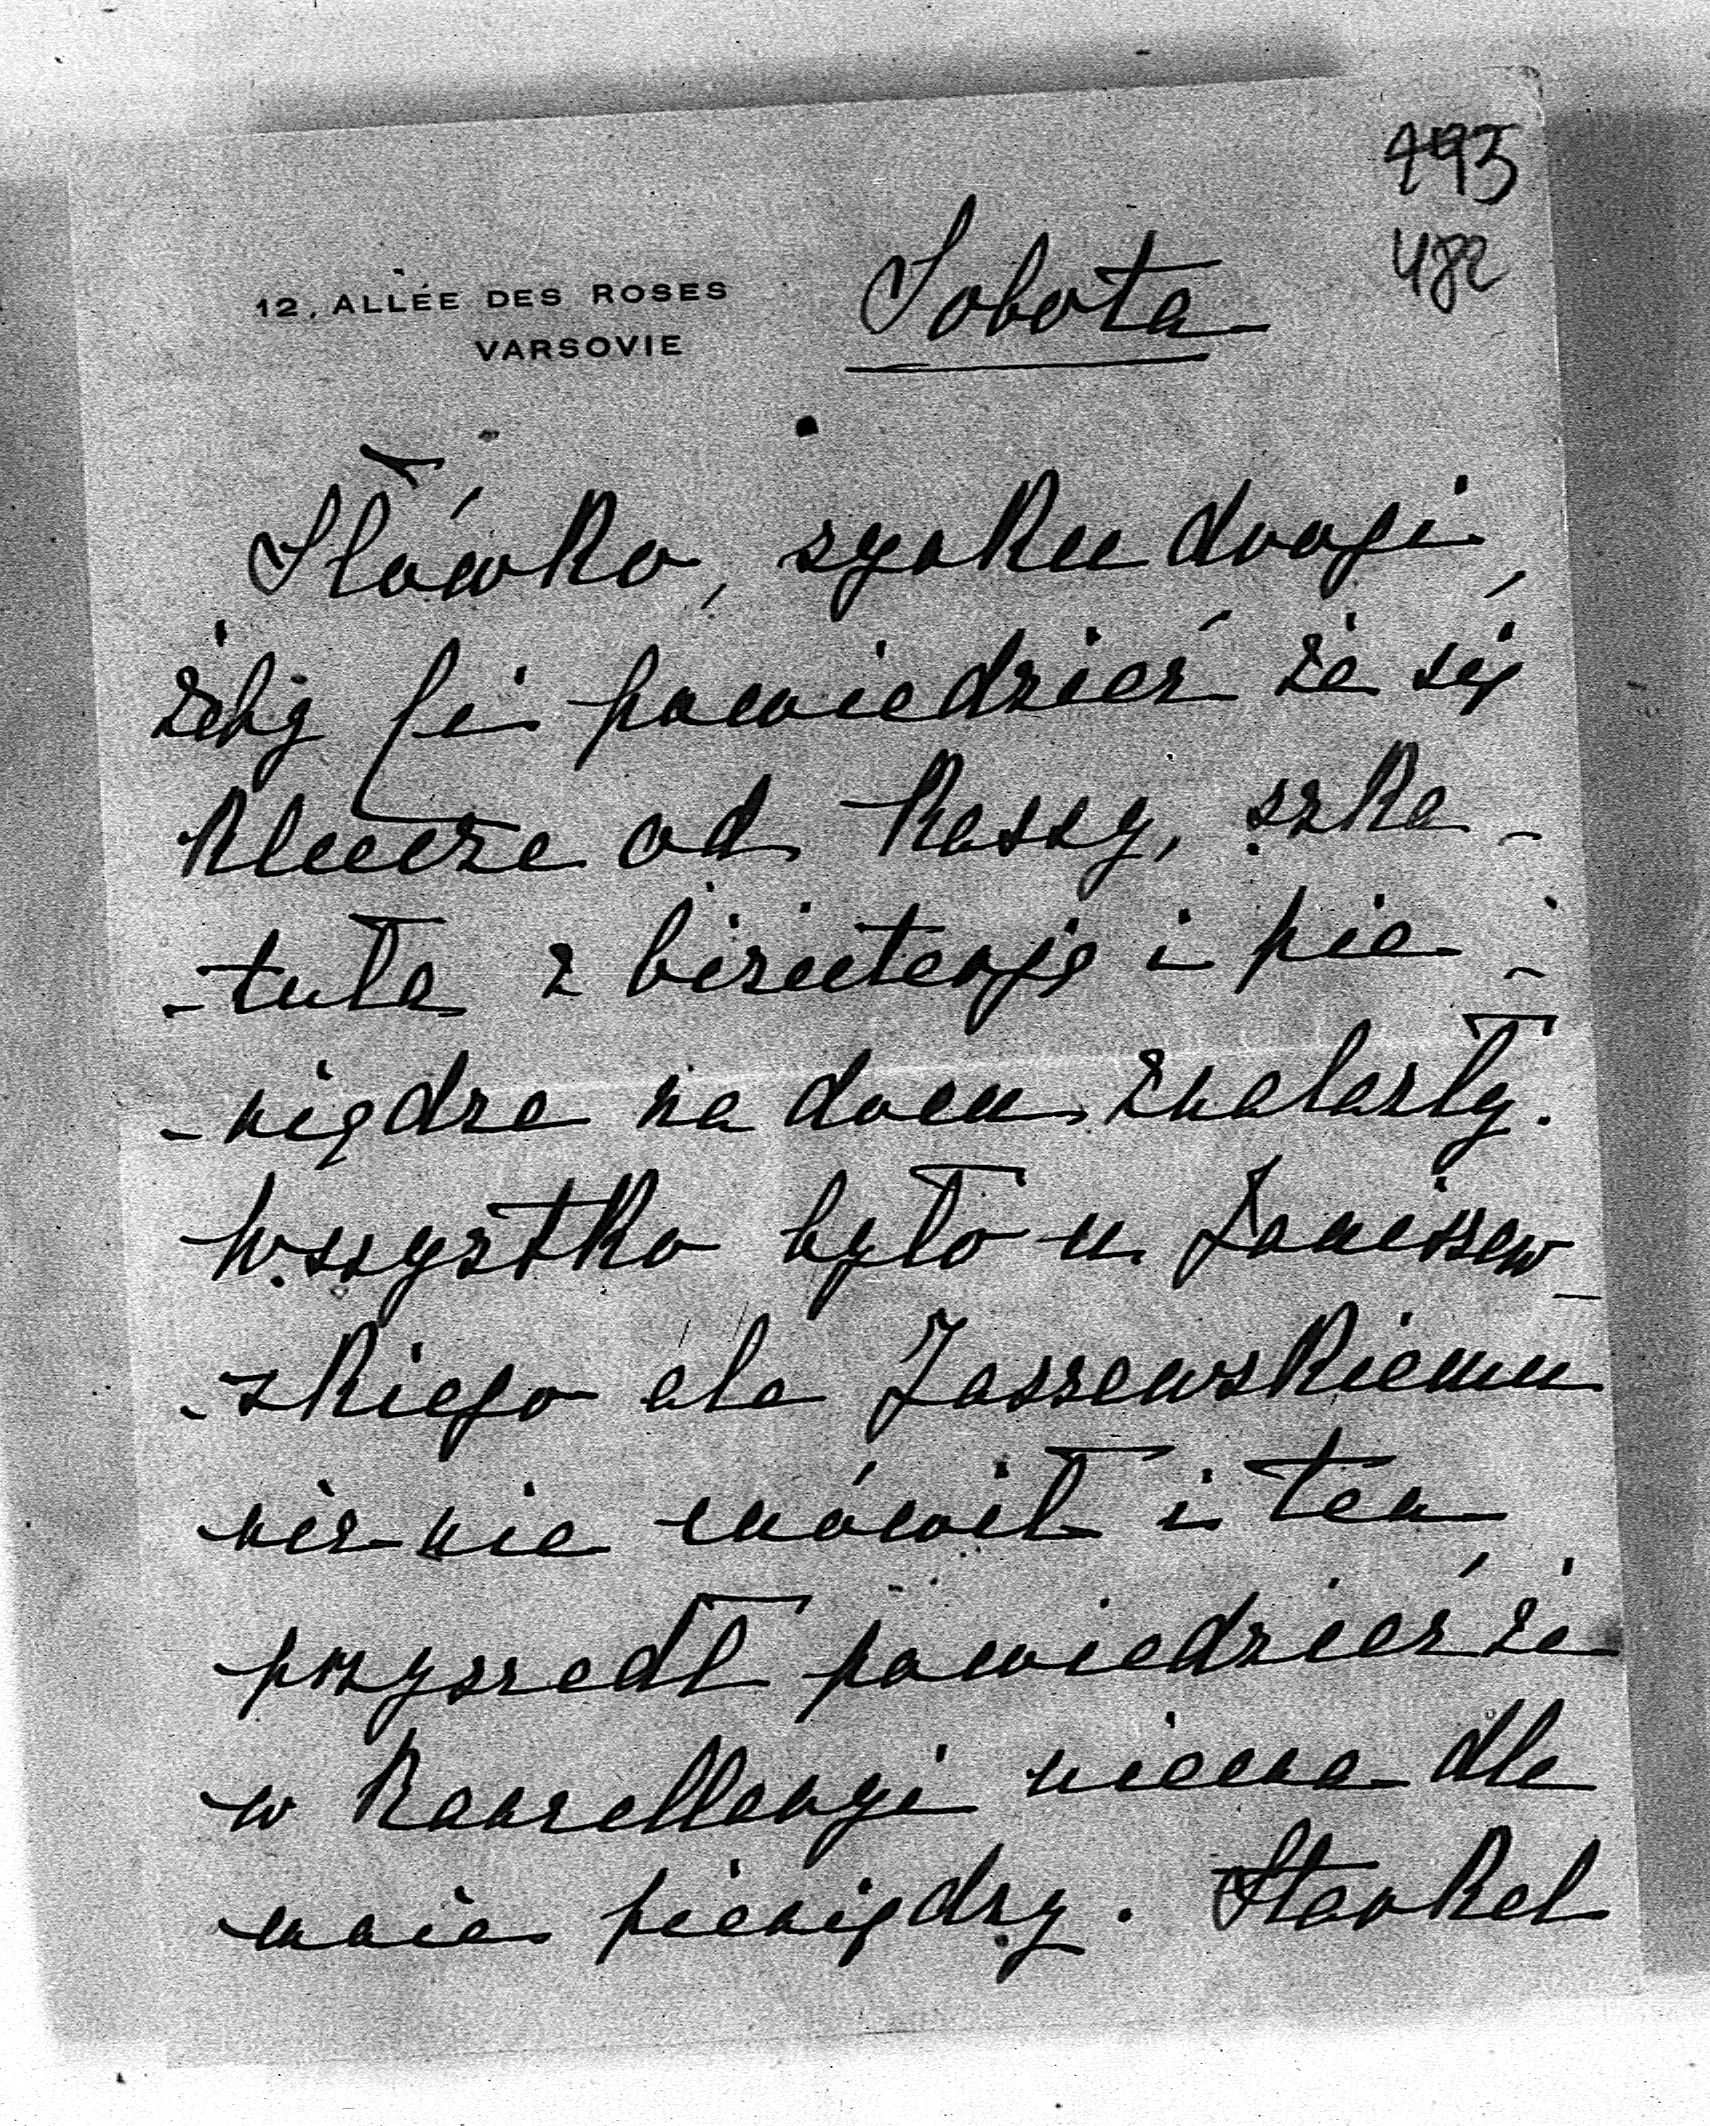 493
482
12, ALLÉE DES ROSES
VARSOVIE
Sobota
Słówko, synku drogi,
żeby Ci powiedzieć że się
klucze od kassy, szka-
-tuła z biżuterją i pie-
-niądze na dom znalazły.
Wszystko było u Janiszew-
-skiego ale Jaszewskiemu
nic nie mówił i ten
przyszedł powiedzieć że
w kancellaryi niema dla
mnie pieniędzy. Stankel